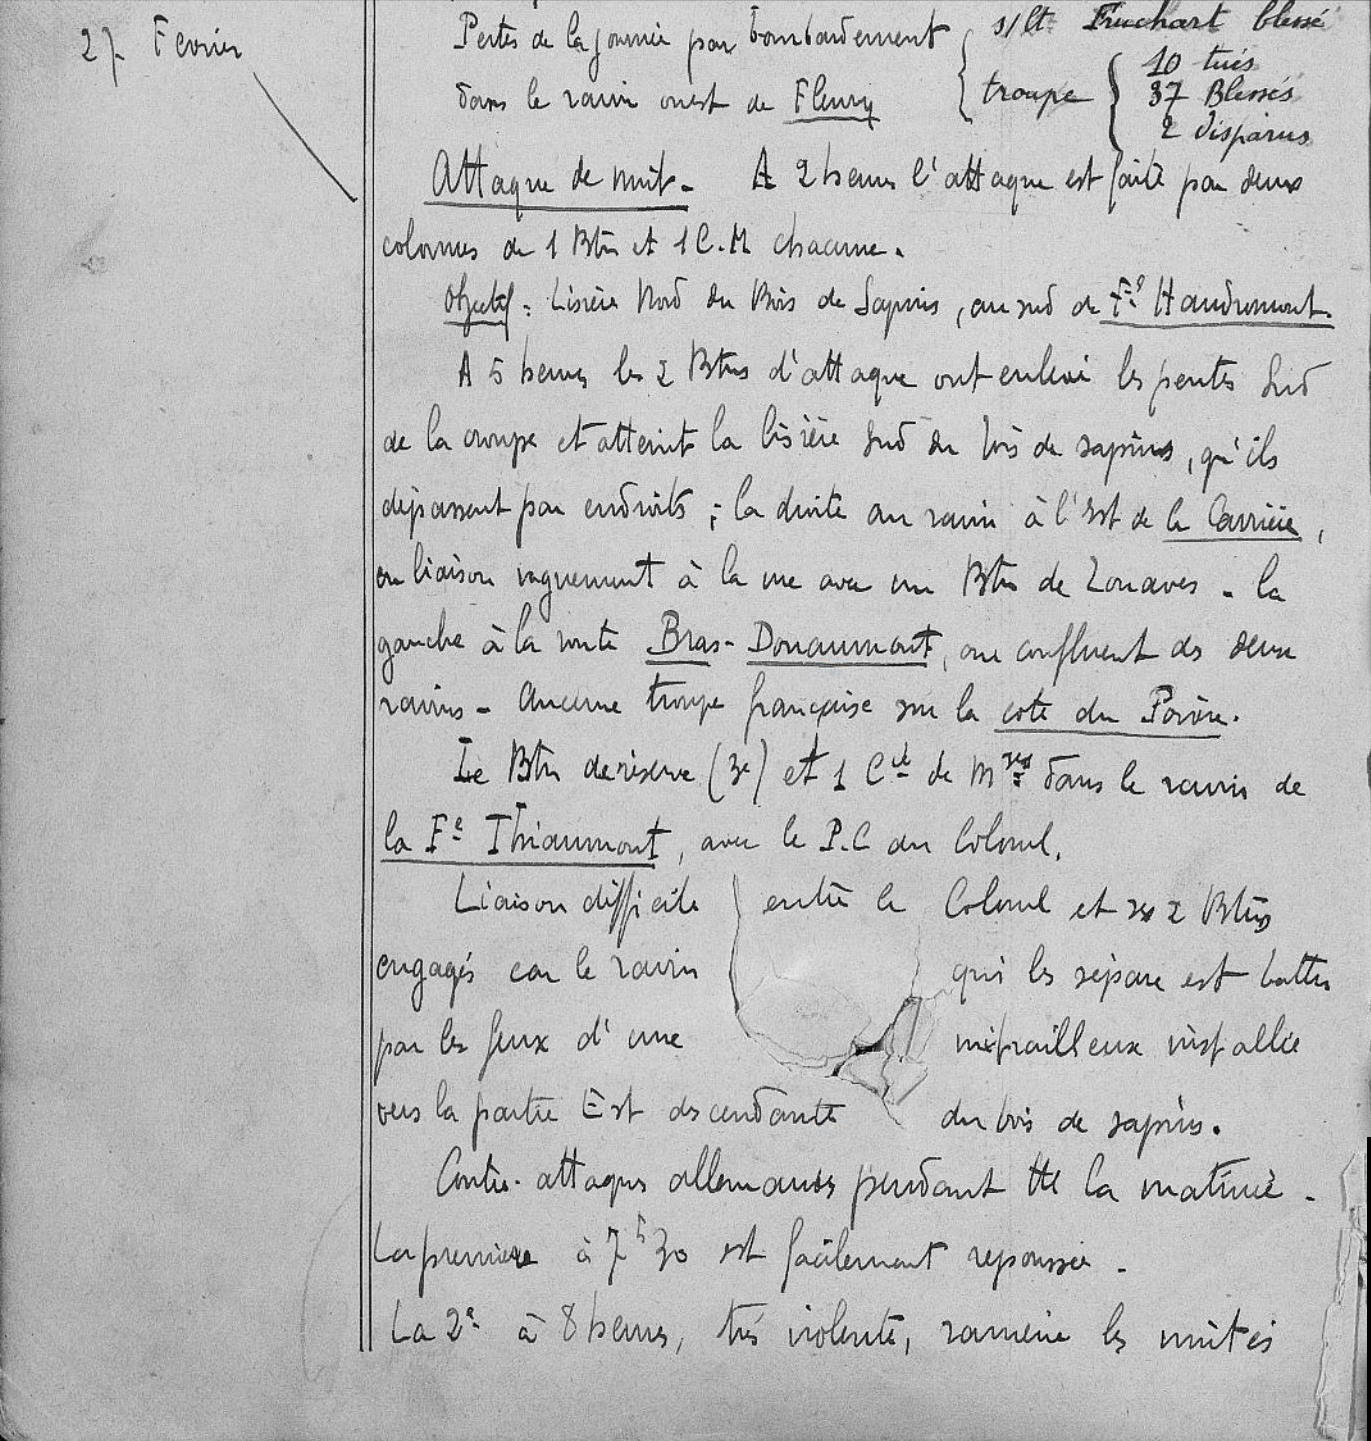 27 Février
Pertes de la journée par bombardement { s/lt Fruchart blessé
dans le ravin ouest de Fleury { troupe { 10 tués
37 Blessés
2 disparus
Attaque de nuit. A 2 heures l'attaque est faite par deux
colonnes de 1 Btn et 1 C.M chacune.
Objectif : Lisière Nord du Bois de Sapins, au sud de Fe Haudromont.
A 5 heures les 2 Btns d'attaque ont enlevé les pentes Sud
de la croupe et atteint la lisière Sud du bois de sapins, qu'ils
dépassent par endroits ; la droite au ravin à l'Est de la Carrière,
en liaison vaguement à la vue avec un Btn de Zouaves - la
gauche à la route Bras-Douaumont, au confluent des deux
ravins - Aucune troupe française sur la cote du Poivre.
Le Btn de réserve (3e) et 1 Cie de Mses dans le ravin de
la Fe Thiaumont, avec le P.C du Colonel.
Liaison difficile entre le Colonel et ses 2 Btns
engagés car le ravin qui les sépare est battu
par les feux d'une mitrailleuse installée
vers la partie Est descendante du bois de sapins.
Contre-attaques allemandes pendant tte la matinée -
La première à 7h30 est facilement repoussée -
La 2e à 8 heures, très violente, ramène les unités